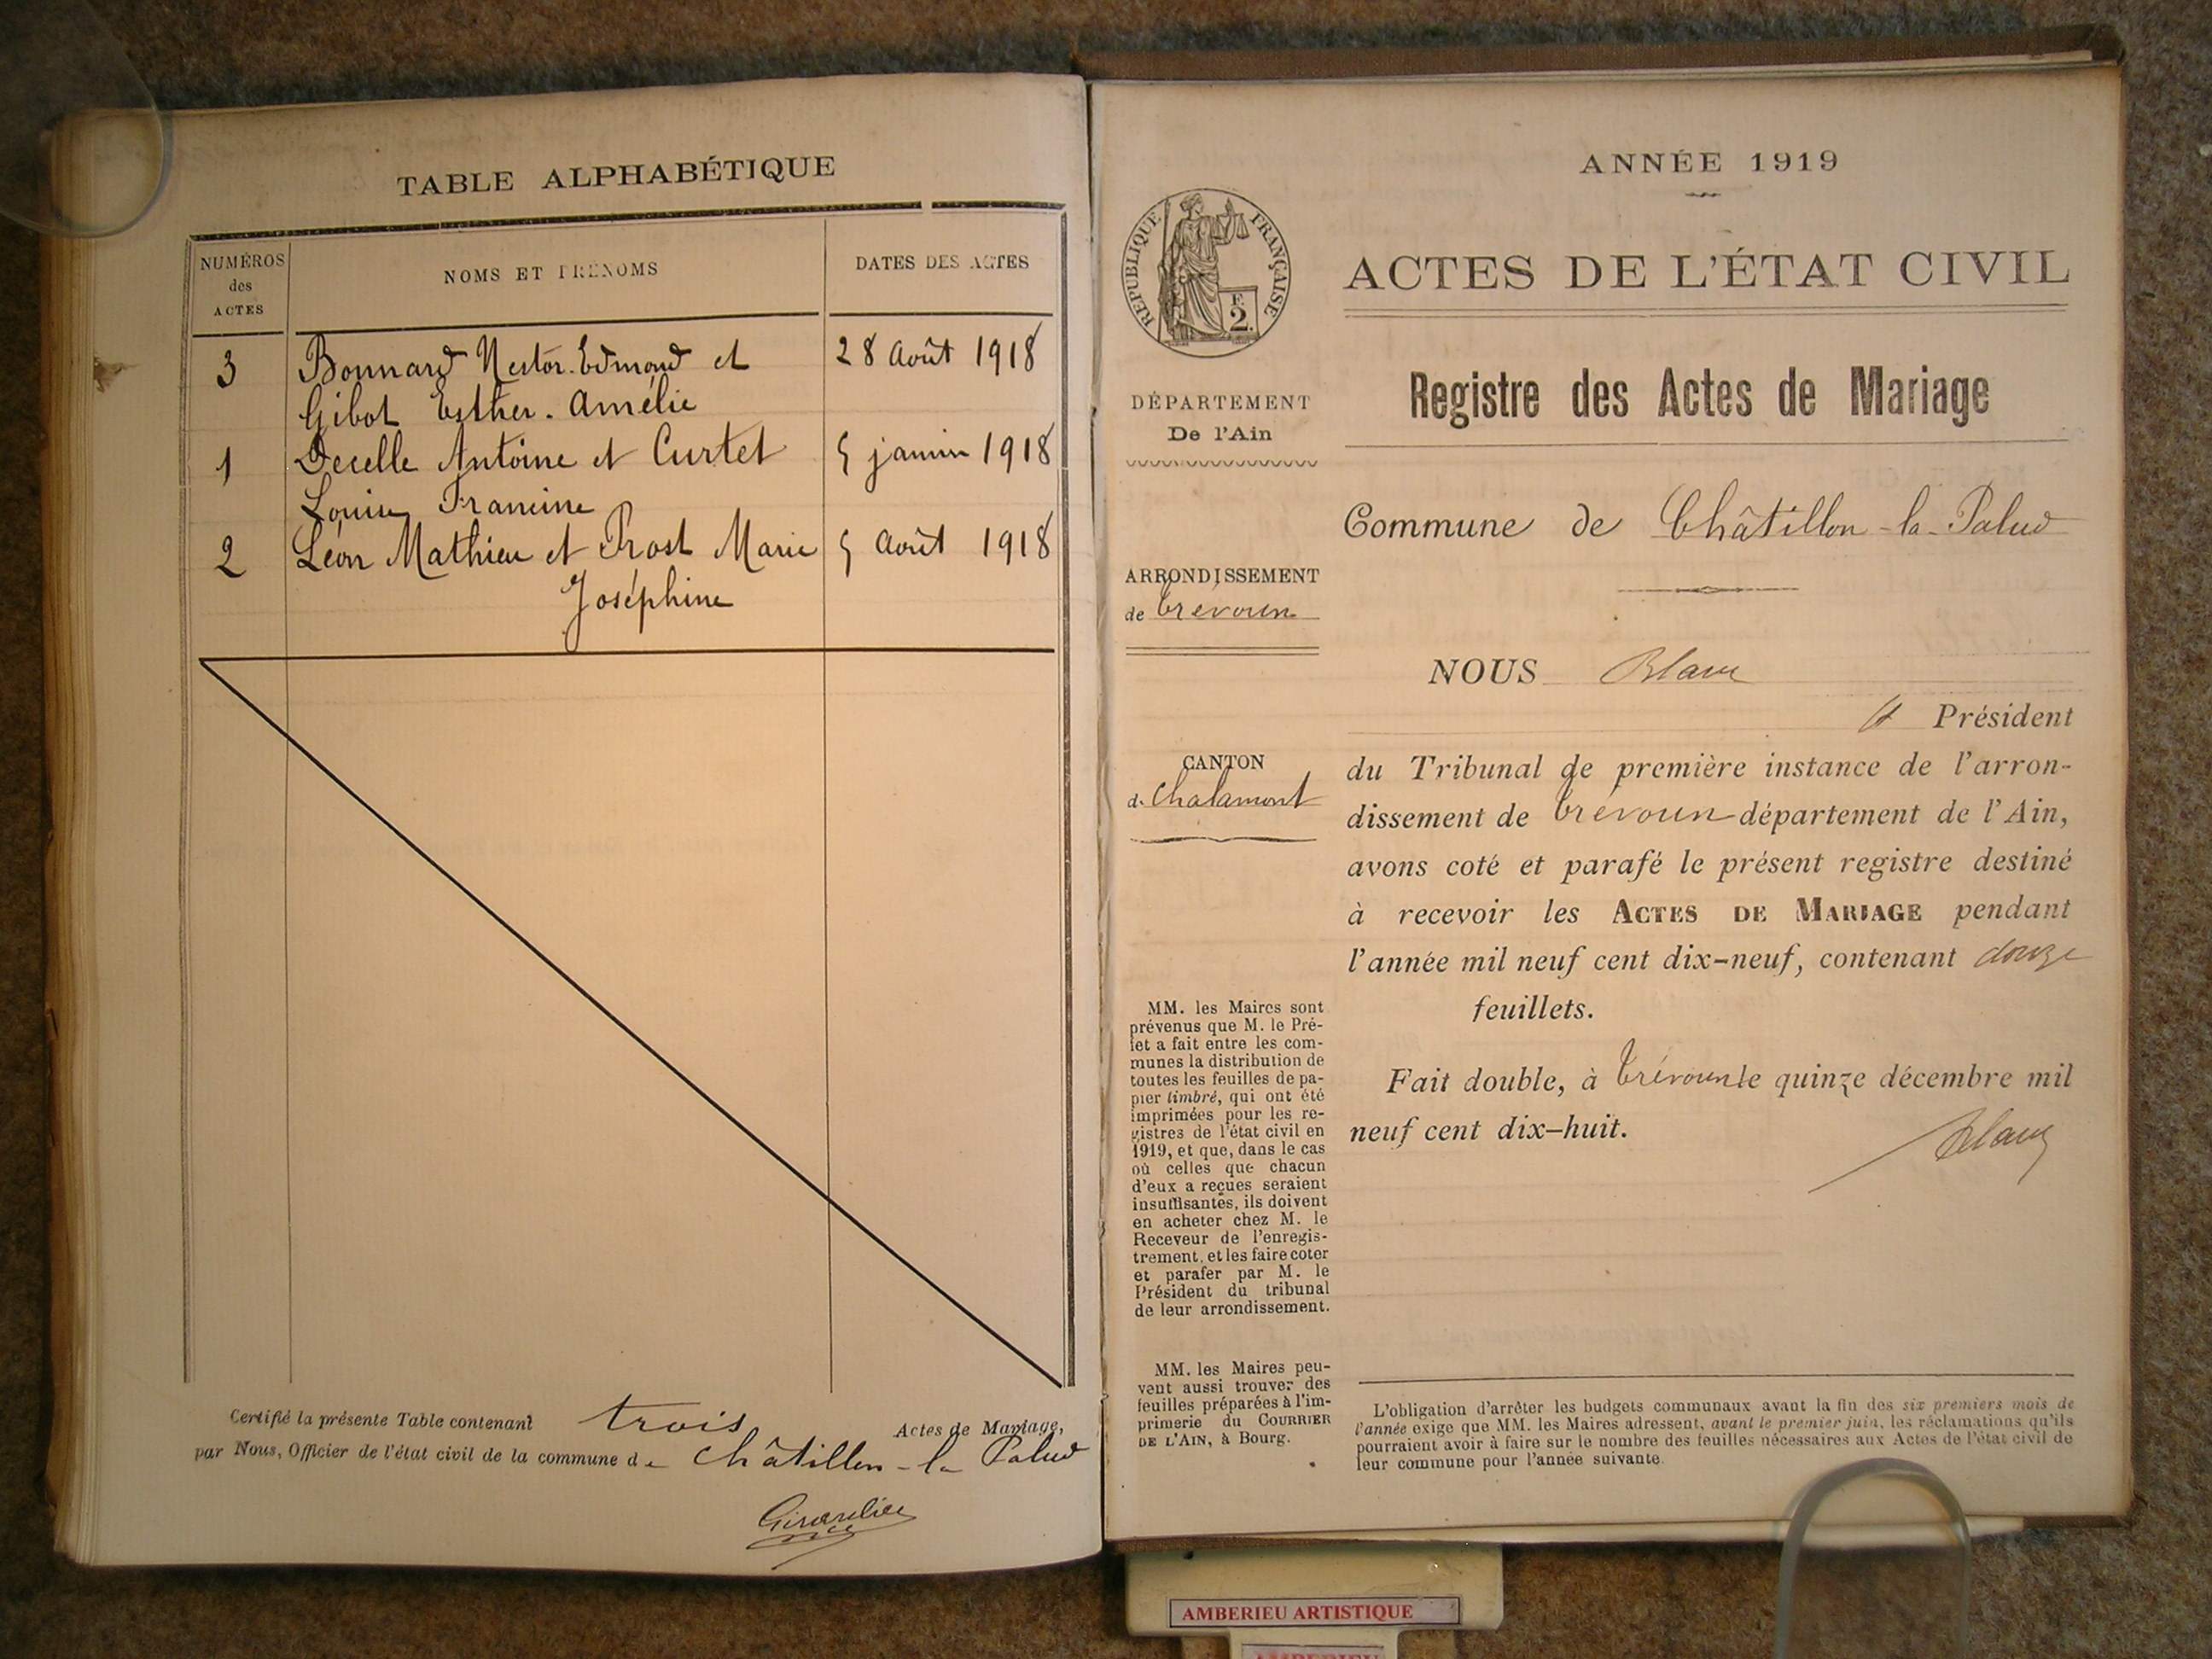 TABLE ALPHABÉTIQUE
NUMÉROS
des
ACTES
NOMS ET PRÉNOMS
DATES DES ACTES
3
Bonnard Nestor. Edmond et
28 Août 1918
Gibot Esther. Amélie
1
Decelle Antoine et Curtet
5 janvier 1918
Louise Francine
2
Léon Mathieu et Prost Marie
5 Août 1918
Joséphine
Certifié la présente Table contenant trois Actes de Mariage,
par Nous, Officier de l'état civil de la commune de Châtillon-la Palud
ANNÉE 1919
RÉPUBLIQUE FRANÇAISE
F.
2.
ACTES DE L'ÉTAT CIVIL
Registre des Actes de Mariage
DÉPARTEMENT
De l'Ain
Commune de Châtillon-la-Palud
ARRONDISSEMENT
de Trévoux
NOUS Blanc
Président
CANTON
de Chalamont
du Tribunal de première instance de l'arron-
dissement de Trévoux département de l'Ain,
avons coté et parafé le présent registre destiné
à recevoir les ACTES DE MARIAGE pendant
l'année mil neuf cent dix-neuf, contenant douze
feuillets.
Fait double, à Trévoux le quinze décembre mil
neuf cent dix-huit.
Blanc
MM. les Maires sont
prévenus que M. le Pré-
fet a fait entre les com-
munes la distribution de
toutes les feuilles de pa-
pier timbré, qui ont été
imprimées pour les re-
gistres de l'état civil en
1919, et que, dans le cas
où celles que chacun
d'eux a reçues seraient
insuffisantes, ils doivent
en acheter chez M. le
Receveur de l'enregis-
trement, et les faire coter
et parafer par M. le
Président du tribunal
de leur arrondissement.
MM. les Maires peu-
vent aussi trouver des
feuilles préparées à l'im-
primerie du COURRIER
DE L'AIN, à Bourg.
L'obligation d'arrêter les budgets communaux avant la fin des six premiers mois de
l'année exige que MM. les Maires adressent, avant le premier juin, les réclamations qu'ils
pourraient avoir à faire sur le nombre des feuilles nécessaires aux Actes de l'état civil de
leur commune pour l'année suivante.
AMBERIEU ARTISTIQUE
AMBERIEU